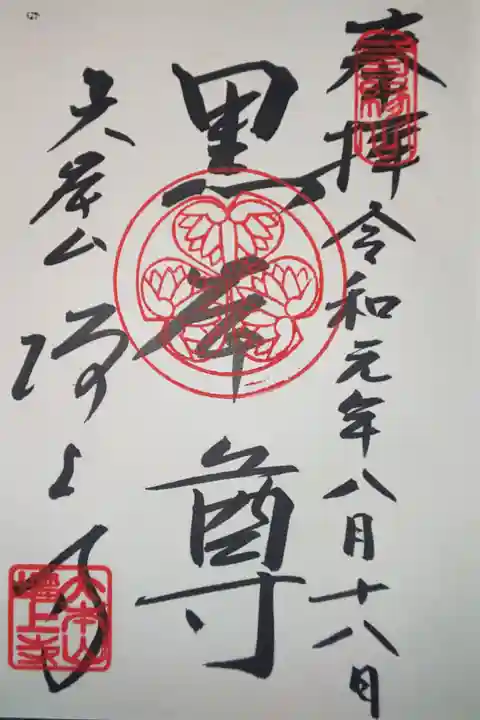 奉拝 令和元年八月十八日
黒本尊
大本山 増上寺
大本山
増上寺